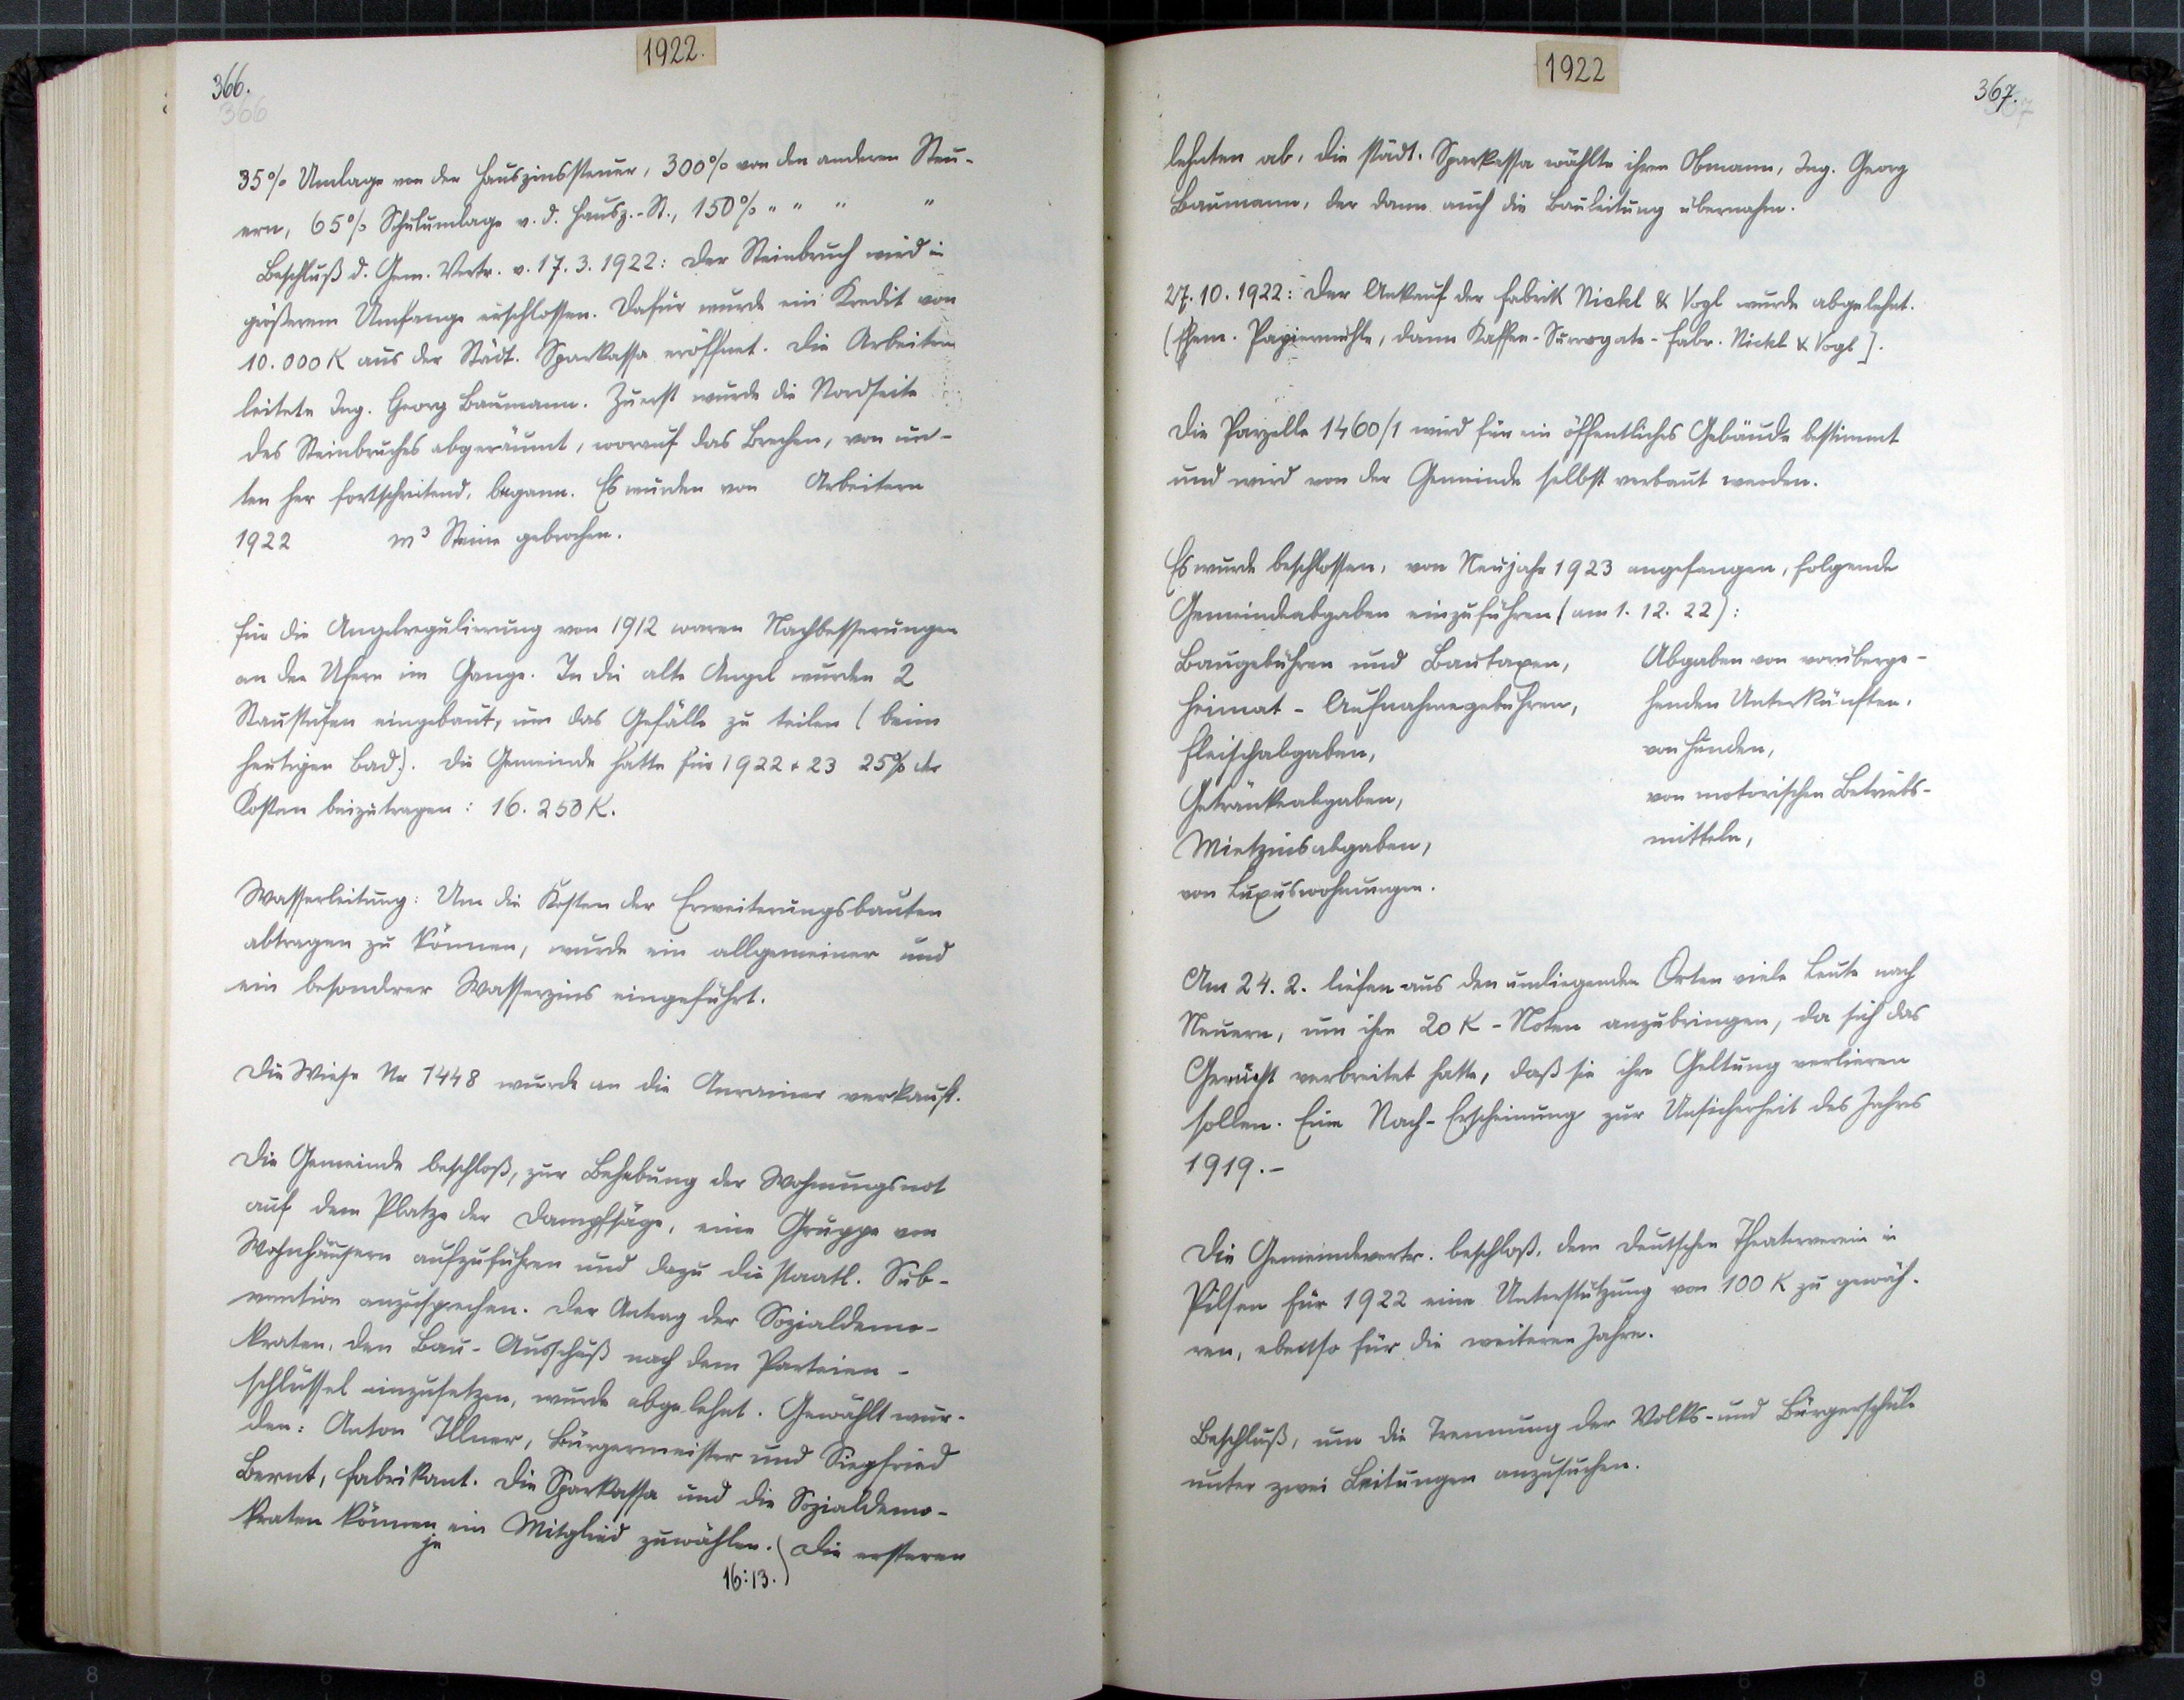 1922.
366.
366
35% Umlage von der Hauszinssteuer, 300% von den anderen Steu-
ern, 65% Schulumlage v. d. Hausz.-St., 150% " " " "
Beschluß d. Gem. Vertr. v. 17. 3. 1922: Der Steinbruch wird in
größerem Umfange erschlossen. Dafür wurde ein Kredit von
10.000 K aus der Städt. Sparkassa eröffnet. Die Arbeiten
leitete Ing. Georg Baumann. Zuerst wurde die Nordseite
des Steinbruches abgeräumt, worauf das Brechen, von un-
ten her fortschreitend, begann. Es wurden von Arbeitern
1922 m³ Steine gebrochen.
Für die Angelregulierung von 1912 waren Nachbesserungen
an den Ufern im Gange. In die alte Angel wurden 2
Staustufen eingebaut, um das Gefälle zu teilen (beim
heutigen Bad). Die Gemeinde hatte für 1922 + 23 25% der
Kosten beizutragen: 16.250 K.
Wasserleitung: Um die Kosten der Erweiterungsbauten
abtragen zu können, wurde ein allgemeiner und
ein besondrer Wasserzins eingeführt.
Die Wiese Nr 1448 wurde an die Anrainer verkauft.
Die Gemeinde beschloß, zur Behebung der Wohnungsnot
auf dem Platze der Dampfsäge, eine Gruppe von
Wohnhäusern aufzuführen und dazu die staatl. Sub-
vention anzusprechen. Der Antrag der Sozialdemo-
kraten, den Bau-Ausschuß nach dem Parteien-
schlüssel einzusetzen, wurde abgelehnt. Gewählt wur-
den: Anton Illner, Bürgermeister und Siegfried
Bernt, Fabrikant. Die Sparkassa und die Sozialdemo-
kraten können je ein Mitglied zuwählen. (Die ersteren
16:13.)
1922
367.
367
lehnten ab, die städt. Sparkassa wählte ihren Obmann, Ing. Georg
Baumann, der dann auch die Bauleitung übernahm.
27. 10. 1922: Der Ankauf der Fabrik Nickl & Vogl wurde abgelehnt.
(Ehem. Papiermühle, dann Kaffee-Surrogate-Fabr. Nickl & Vogl].
Die Parzelle 1460/1 wird für ein öffentliches Gebäude bestimmt
und wird von der Gemeinde selbst verbaut werden.
Es wurde beschlossen, von Neujahr 1923 angefangen, folgende
Gemeindeabgaben einzuführen (am 1. 12. 22):
Baugebühren und Bautaxen,
Heimat-Aufnahmegebühren,
Fleischabgaben,
Getränkeabgaben,
Mietzinsabgaben,
von Luxuswohnungen.
Abgaben von vorüberge-
henden Unterkünften,
von Hunden,
von motorischen Betriebs-
mitteln,
Am 24. 2. liefen aus den umliegenden Orten viele Leute nach
Neuern, um ihre 20 K-Noten anzubringen, da sich das
Gerücht verbreitet hatte, daß sie ihre Geltung verlieren
sollen. Eine Nach-Erscheinung zur Unsicherheit des Jahres
1919.-
Die Gemeindevertr. beschloß, dem Deutschen Theaterverein in
Pilsen für 1922 eine Unterstützung von 100 K zu gewäh-
ren, ebenso für die weiteren Jahre.
Beschluß, um die Trennung der Volks- und Bürgerschule
unter zwei Leitungen anzusuchen.
8 7 6 5 6 7 8 9